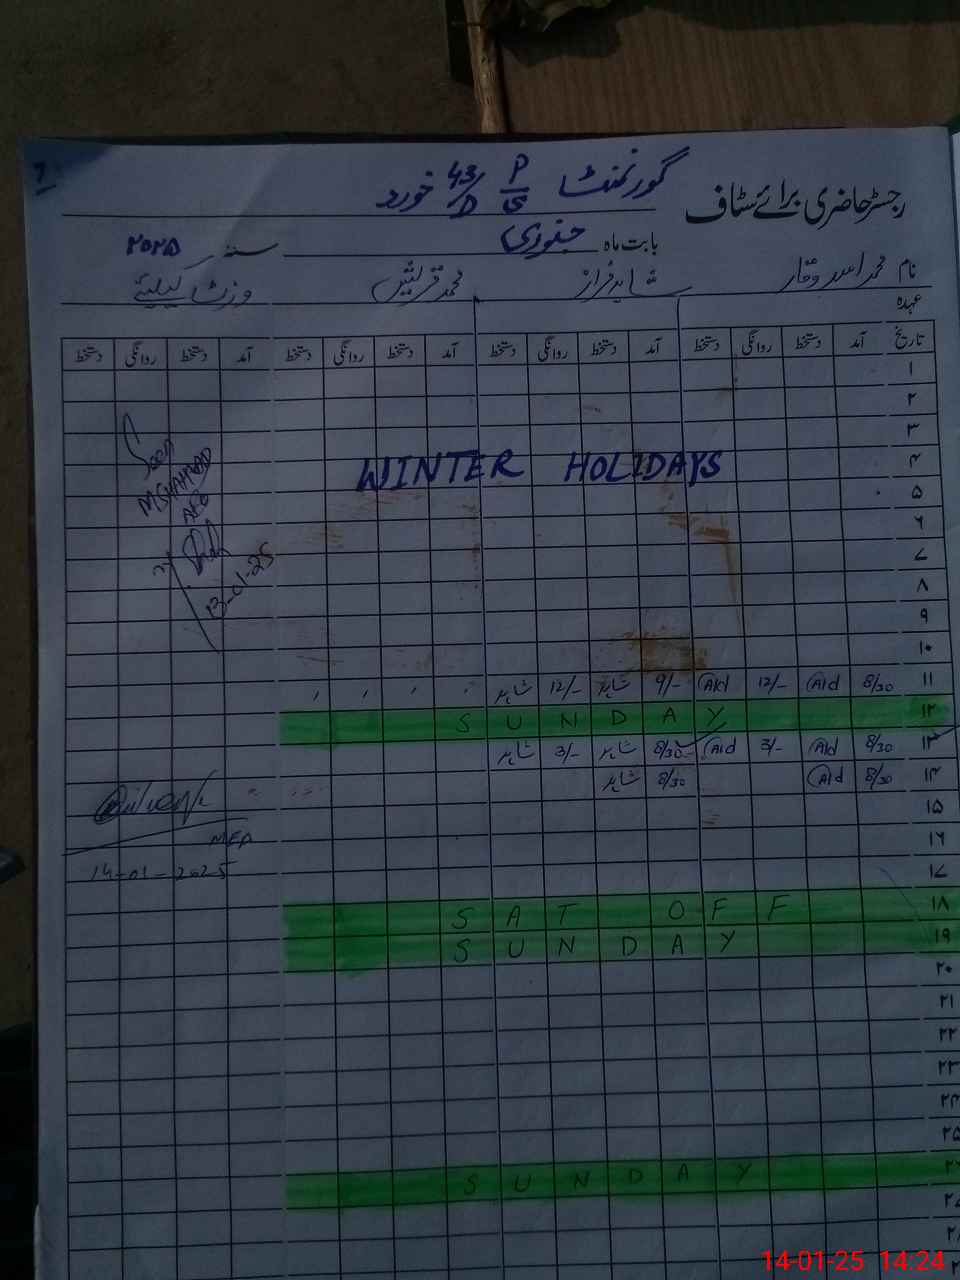 رجسٹر حاضری برائے سٹاف گورنمنٹ P/S 43/D خورد
بابت ماہ جنوری سنہ ۲۰۲۵
نام محمد اسد وقار شاہد فراز محمد قریش وزٹ کیلئے
عہدہ
تاریخ آمد دستخط روانگی دستخط آمد دستخط روانگی دستخط آمد دستخط روانگی دستخط آمد دستخط روانگی دستخط
۱
۲
۳
۴
WINTER HOLIDAYS
۵
۶
۷
۸
۹
۱۰
Seen
M SHAHZAD
AEO
13-01-25
۱۱ 8/30 12/- 9/- شاہد 12/- شاہد
۱۲ SUNDAY
۱۳ 8/30 3/- 8/30 شاہد 3/- شاہد
۱۴ 8/30 8/30 شاہد
۱۵
۱۶
۱۷
MEA
14-01-2025
۱۸ SAT OFF
۱۹ SUNDAY
۲۰
۲۱
۲۲
۲۳
۲۴
۲۵
۲۶ SUNDAY
۲۷
۲۸
14-01-25 14:24